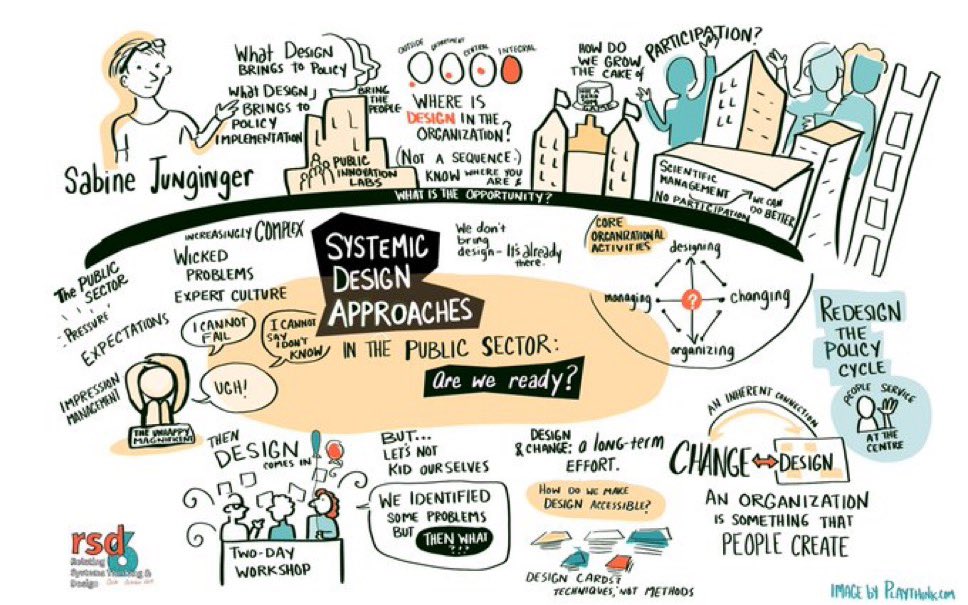 What DESIGN
BRINGS TO POLICY
What DESIGN
BRINGS TO
POLICY
IMPLEMENTATION
Sabine Junginger
BRING
THE
PEOPLE
PUBLIC
INNOVATION
LABS
OUTSIDE
DEPARTMENT
CENTRAL
INTEGRAL
WHERE IS
DESIGN IN THE
ORGANIZATION?
(NOT A SEQUENCE:)
KNOW WHERE YOU
ARE
HOW DO
WE GROW
THE CAKE of
PARTICIPATION?
SCIENTIFIC
MANAGEMENT
NO PARTICIPATION
WE CAN
DO BETTER
WHAT IS THE OPPORTUNITY?
INCREASINGLY COMPLEX
WICKED
PROBLEMS
EXPERT CULTURE
The PUBLIC
SECTOR
PRESSURE
EXPECTATIONS
IMPRESSION
MANAGEMENT
I CANNOT
FAIL
I CANNOT
SAY
I DON'T
KNOW
UGH!
THE UNHAPPY
MAGNIFICENT
SYSTEMIC
DESIGN
APPROACHES
IN THE PUBLIC SECTOR:
Are we ready?
We don't
bring
design - It's already
there.
CORE
ORGANIZATIONAL
ACTIVITIES
designing
managing
?
changing
organizing
REDESIGN
THE
POLICY
CYCLE
PEOPLE SERVICE
AT THE
CENTRE
THEN
DESIGN
COMES IN
TWO-DAY
WORKSHOP
BUT...
LET'S NOT
KID OURSELVES
WE IDENTIFIED
SOME PROBLEMS
BUT THEN WHAT
?!?
DESIGN
& CHANGE: a long-term
EFFORT.
HOW DO WE MAKE
DESIGN ACCESSIBLE?
DESIGN CARDS?
TECHNIQUES, NOT METHODS
AN INHERENT CONNECTION
CHANGE DESIGN
AN ORGANIZATION
IS SOMETHING THAT
PEOPLE CREATE
rsd6
Relating
Systems Thinking &
Design
IMAGE by PLAYTHINK.com